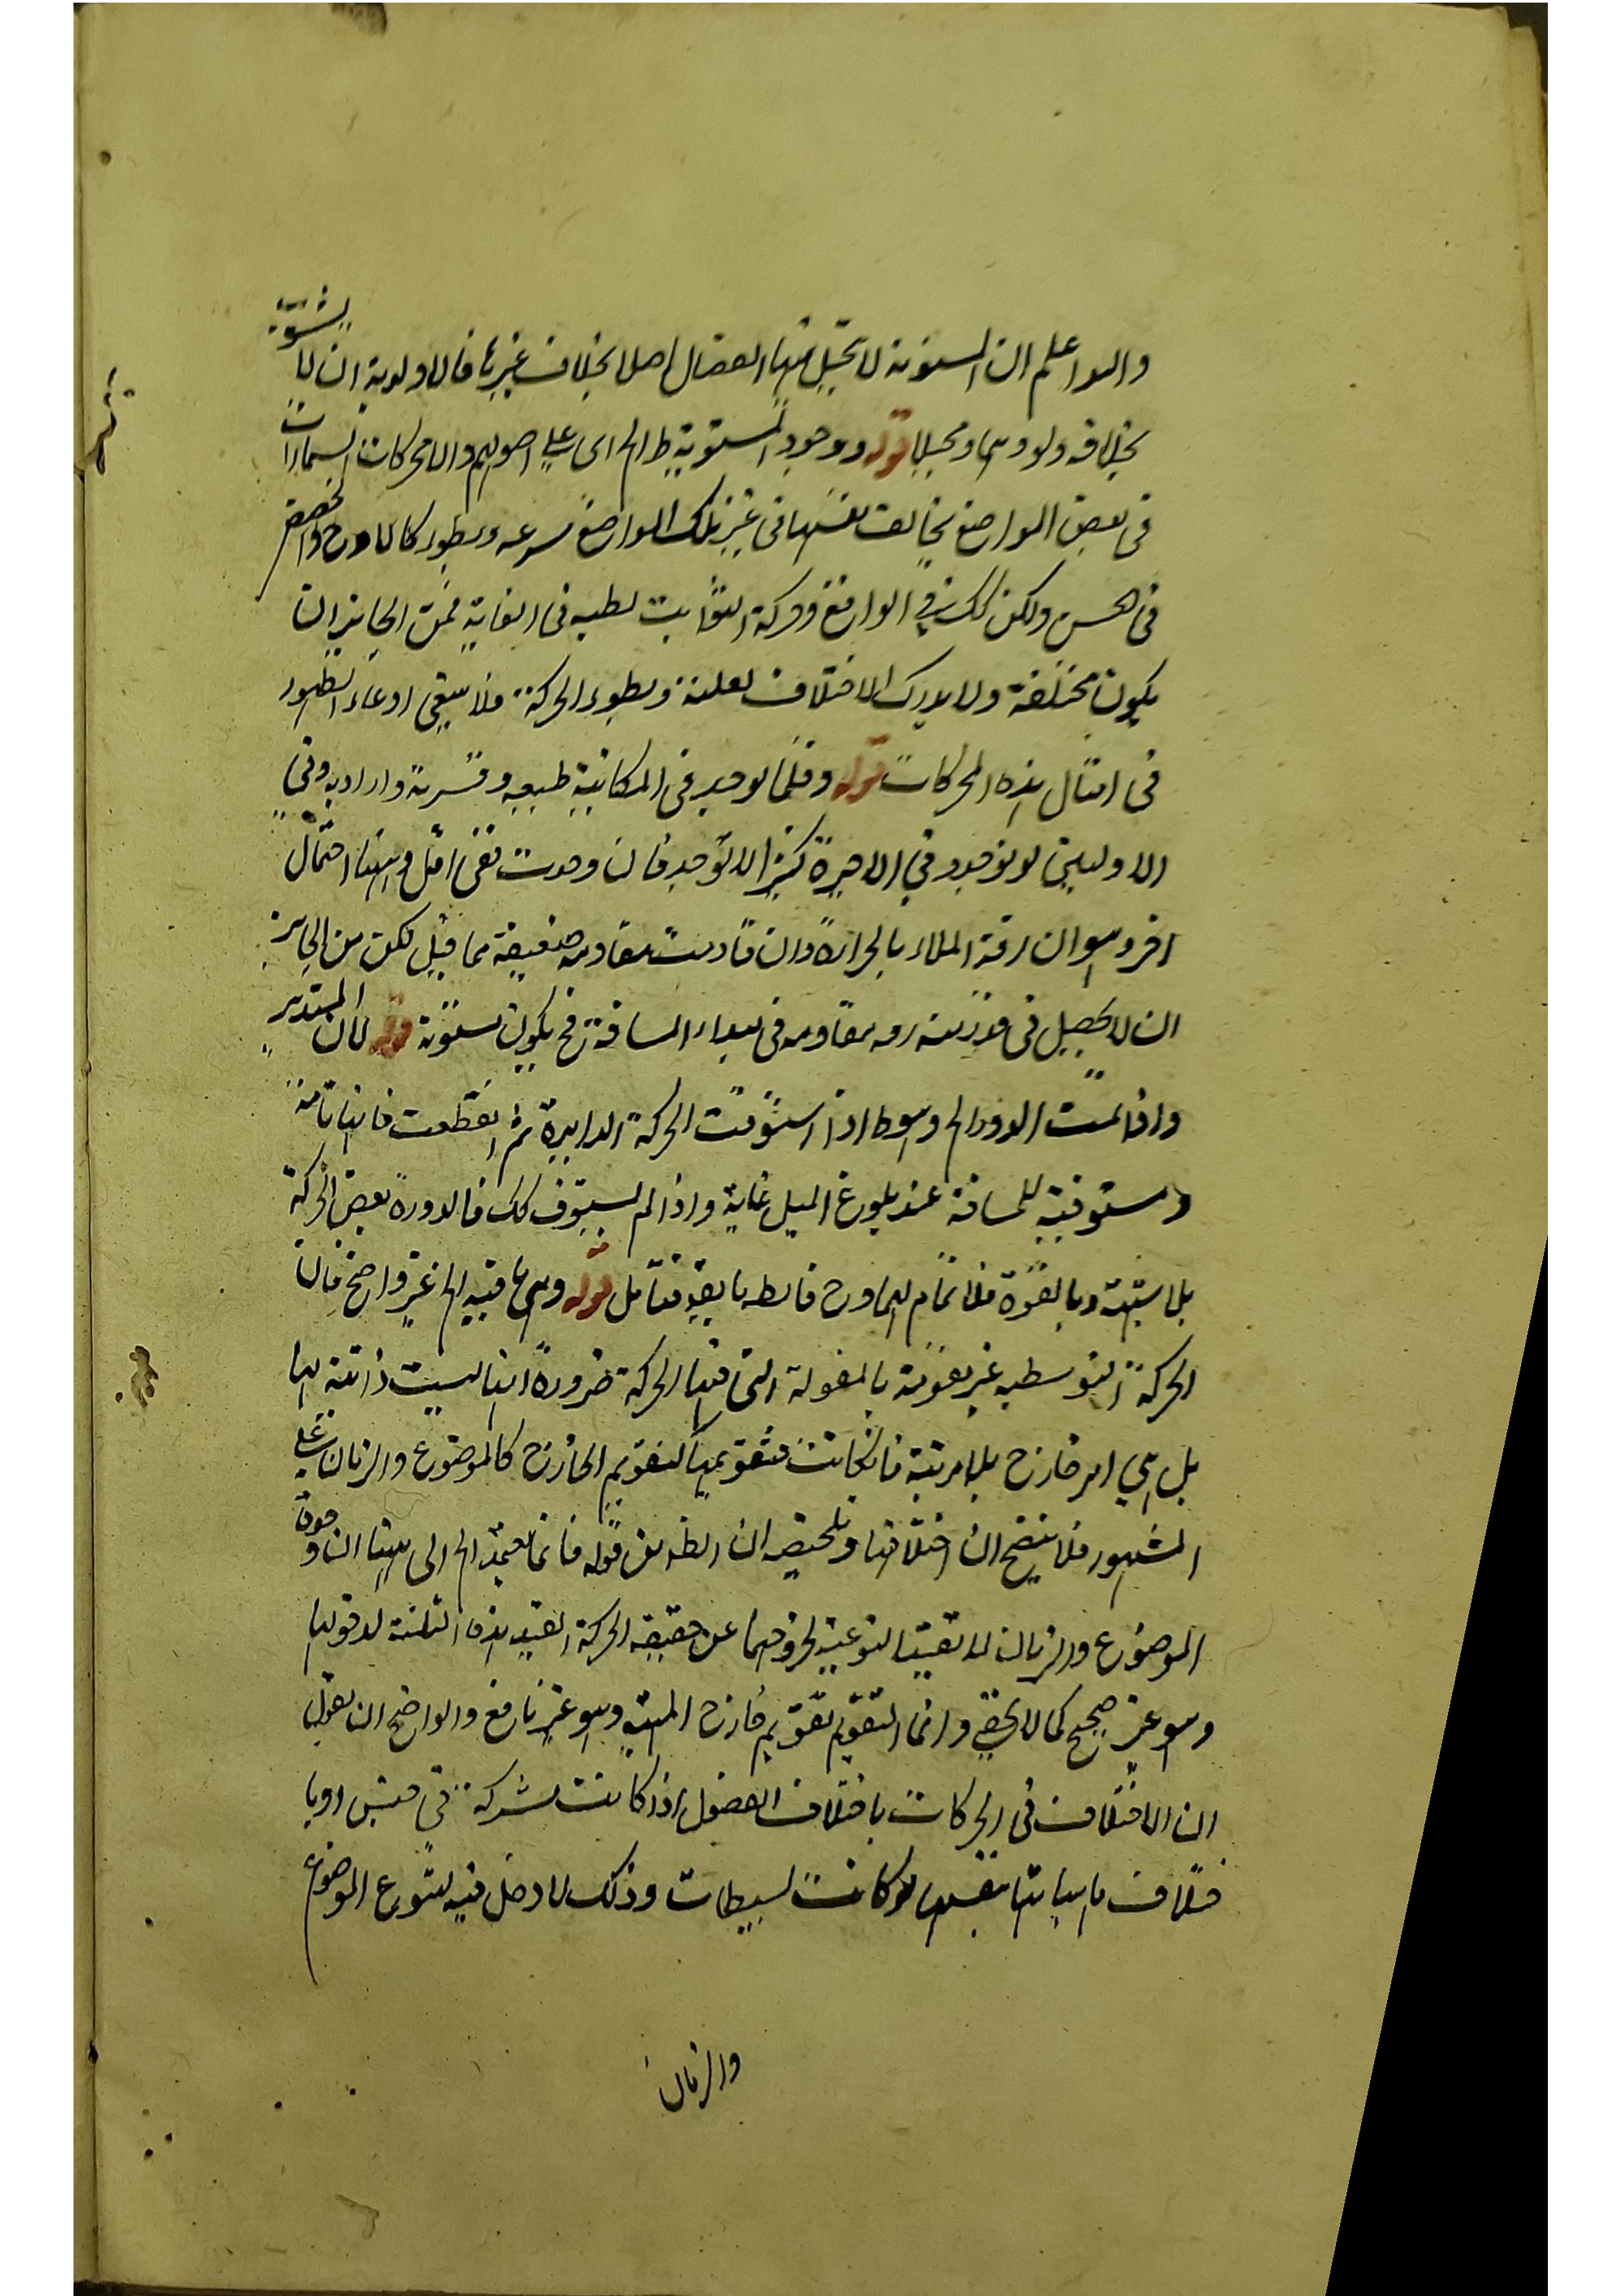 والله اعلم ان المستوية لا تحيل منها انفصال اصلا بخلاف غيرها فالاولوية ان لا يشوبه
بخلافه ولو وهما ومخيلا قوله ووجود المستوية ط الخ اى على اصولهم والا فحركات السمارات
فى بعض المواضع تخالف نفسها فى غير تلك المواضع سرعه وبطور كالاوج والحضيض
فى الحس ولكن كك فى الواقع وحركة الثوابت بطيه فى الغاية فمن الجايز ان
يكون مختلفة ولا يدرك الاختلاف لعلته وبطوء الحركة فلا يبقى ادعاء الظهور
فى امثال هذه الحركات قوله وقلما توجد فى المكانية طبيعيه وقسرية واراديه وفى
الاوليين لو توجد وفى الاخيرة كثيرا لا توجد فان وجدت ففى اقل وههنا احتمال
اخر وهو ان رقة الملاء بالحرارة وان قاومت مقاومه ضعيفة مما قبل لكن من الجايز
ان لا يحصل فى قدر منه مقاومه فى مبداء المسافة فح يكون مستوية قوله لان المستدير
واذا تمت الدورالخ وهو ط اذا استوفت الحركة الدايرة ثم انقطعت فانها تامة
مستوفية للمسافة عند بلوغ الميل غاية واذا لم يستوف كك فالدورة بعض الحركة
بلا شبهة وبالقوة فلا تمام لها وح فابطه بابقيه فتامل قوله وهى ما فيه الخ غير واضح فان
الحركة التوسطيه غير متقومة بالمقولة التى فيها الحركة ضرورة انها ليست ذاتية لها
بل هى امر خارج بلا مرتبة فانكانت متقوم بها تقويم الخارج كالموضوع والزمان على
المشهور فلا يتضح ان اختلافها وتلخيصه ان الظ من قوله فانما يعتمد الخ الى ههنا ان وحدة
الموضوع والزمان لا تفيد النوعية لخروجهما عن حقيقه الحركة المقيد هذا الثلثة لدخولها
وهو غير صحيح كما لا يخفى وانما التقويم تقويم خارج المهية وهو غير نافع والواضح ان يقول
ان الاختلاف فى الحركات باختلاف الفصول اذا كانت مشتركة فى جنس او با
ختلاف ماهياتها بنفسها لو كانت بسيطات وذلك لا دخل فيه لتنوع الموضوع
والزمان